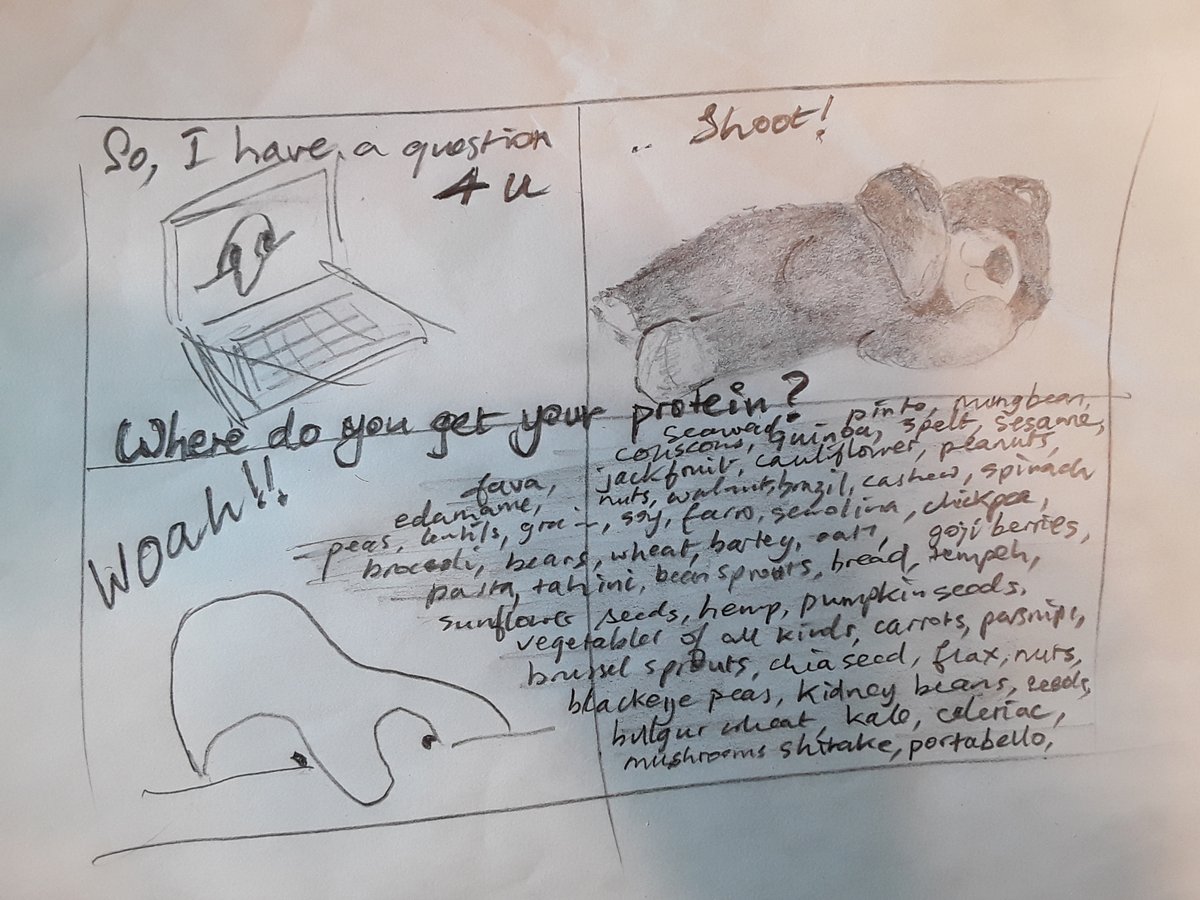 So, I have a question
4 U
.. Shoot!
Where do you get your protein?
Woah!!
seawead,
pinto, mungbean,
couscous, quinoa, spelt, sesame,
fava, jackfruit, cauliflower, peanuts,
edamame, nuts, walnut, brazil, cashew, spinach
peas, lentils, soy, farro, semolina, chickpea,
broccoli, beans, wheat, barley, oats, goji berries,
pasta, tahini, bean sprouts, bread, tempeh,
sunflower seeds, hemp, pumpkin seeds,
vegetables of all kinds, carrots, parsnips,
brussel sprouts, chia seed, flax, nuts,
blackeye peas, kidney beans, seeds,
bulgur wheat, kale, celeriac,
mushrooms shitake, portabello,